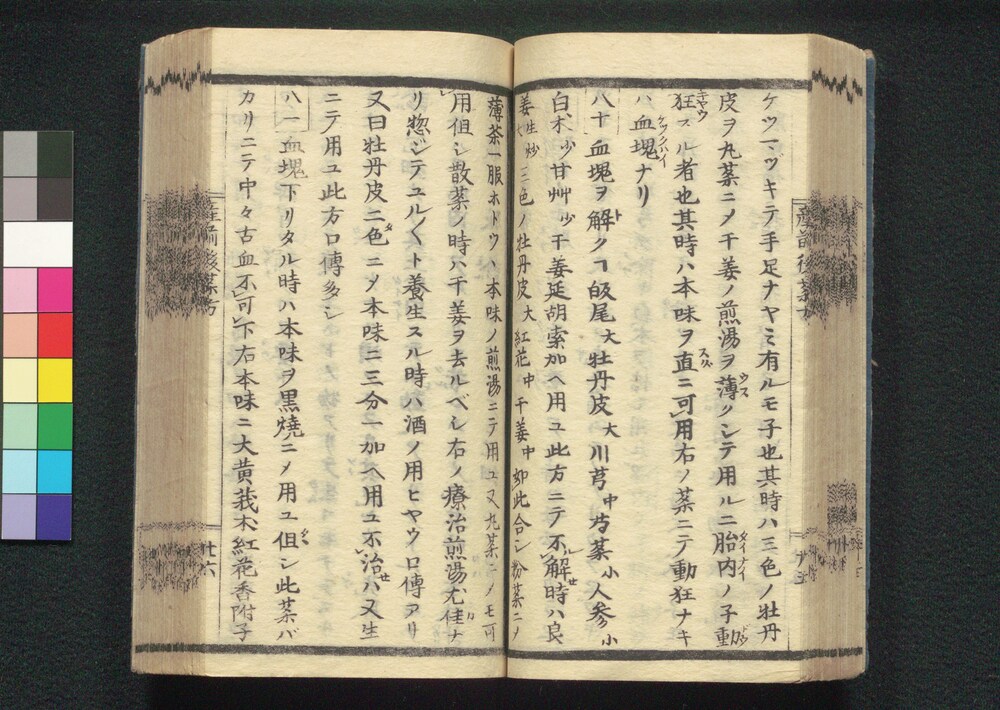 ケツマツキテ手足ナヤミ有ルモ子也其時ハ三色ノ牡丹
皮ヲ丸薬ニメ干姜ノ煎湯ヲ薄クシテ用ルニ胎内ノ子動
狂スル者也其時ハ本味ヲ直ニ可用右ノ薬ニテ動狂ナキ
ハ血塊ナリ
八十血塊ヲ解クヿ皈尾大牡丹皮大川芎中芍薬小人参小
白朮少甘艸少干姜延胡索加ヘ用ユ此方ニテ不解時ハ良
姜生炒大三色ノ牡丹皮大紅花中干姜中如此合シ粉薬ニメ
薄茶一服ホトツヽ本味ノ煎湯ニテ用ユ又丸薬ニメモ可
用但シ散薬ノ時ハ干姜ヲ去ルベシ右ノ療治煎湯尤佳ナ
リ惣ジテユル〱ト養生スル時ハ酒ノ用ヒヤウロ傳アリ
又曰牡丹皮二色ニメ本味ニ三分一加ヘ用ユ不治ハ又生
ニテ用ユ此方口傳多シ
八一血塊下リタル時ハ本味ヲ黒焼ニメ用ユ但シ此薬バ
カリニテ中々古血不可下右本味ニ大黄莪朮紅花香附子
産前後薬方
廿六